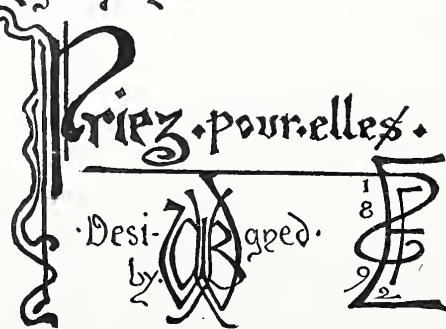 Priez·pour·elles·
·Desi-gned·
by·
1892